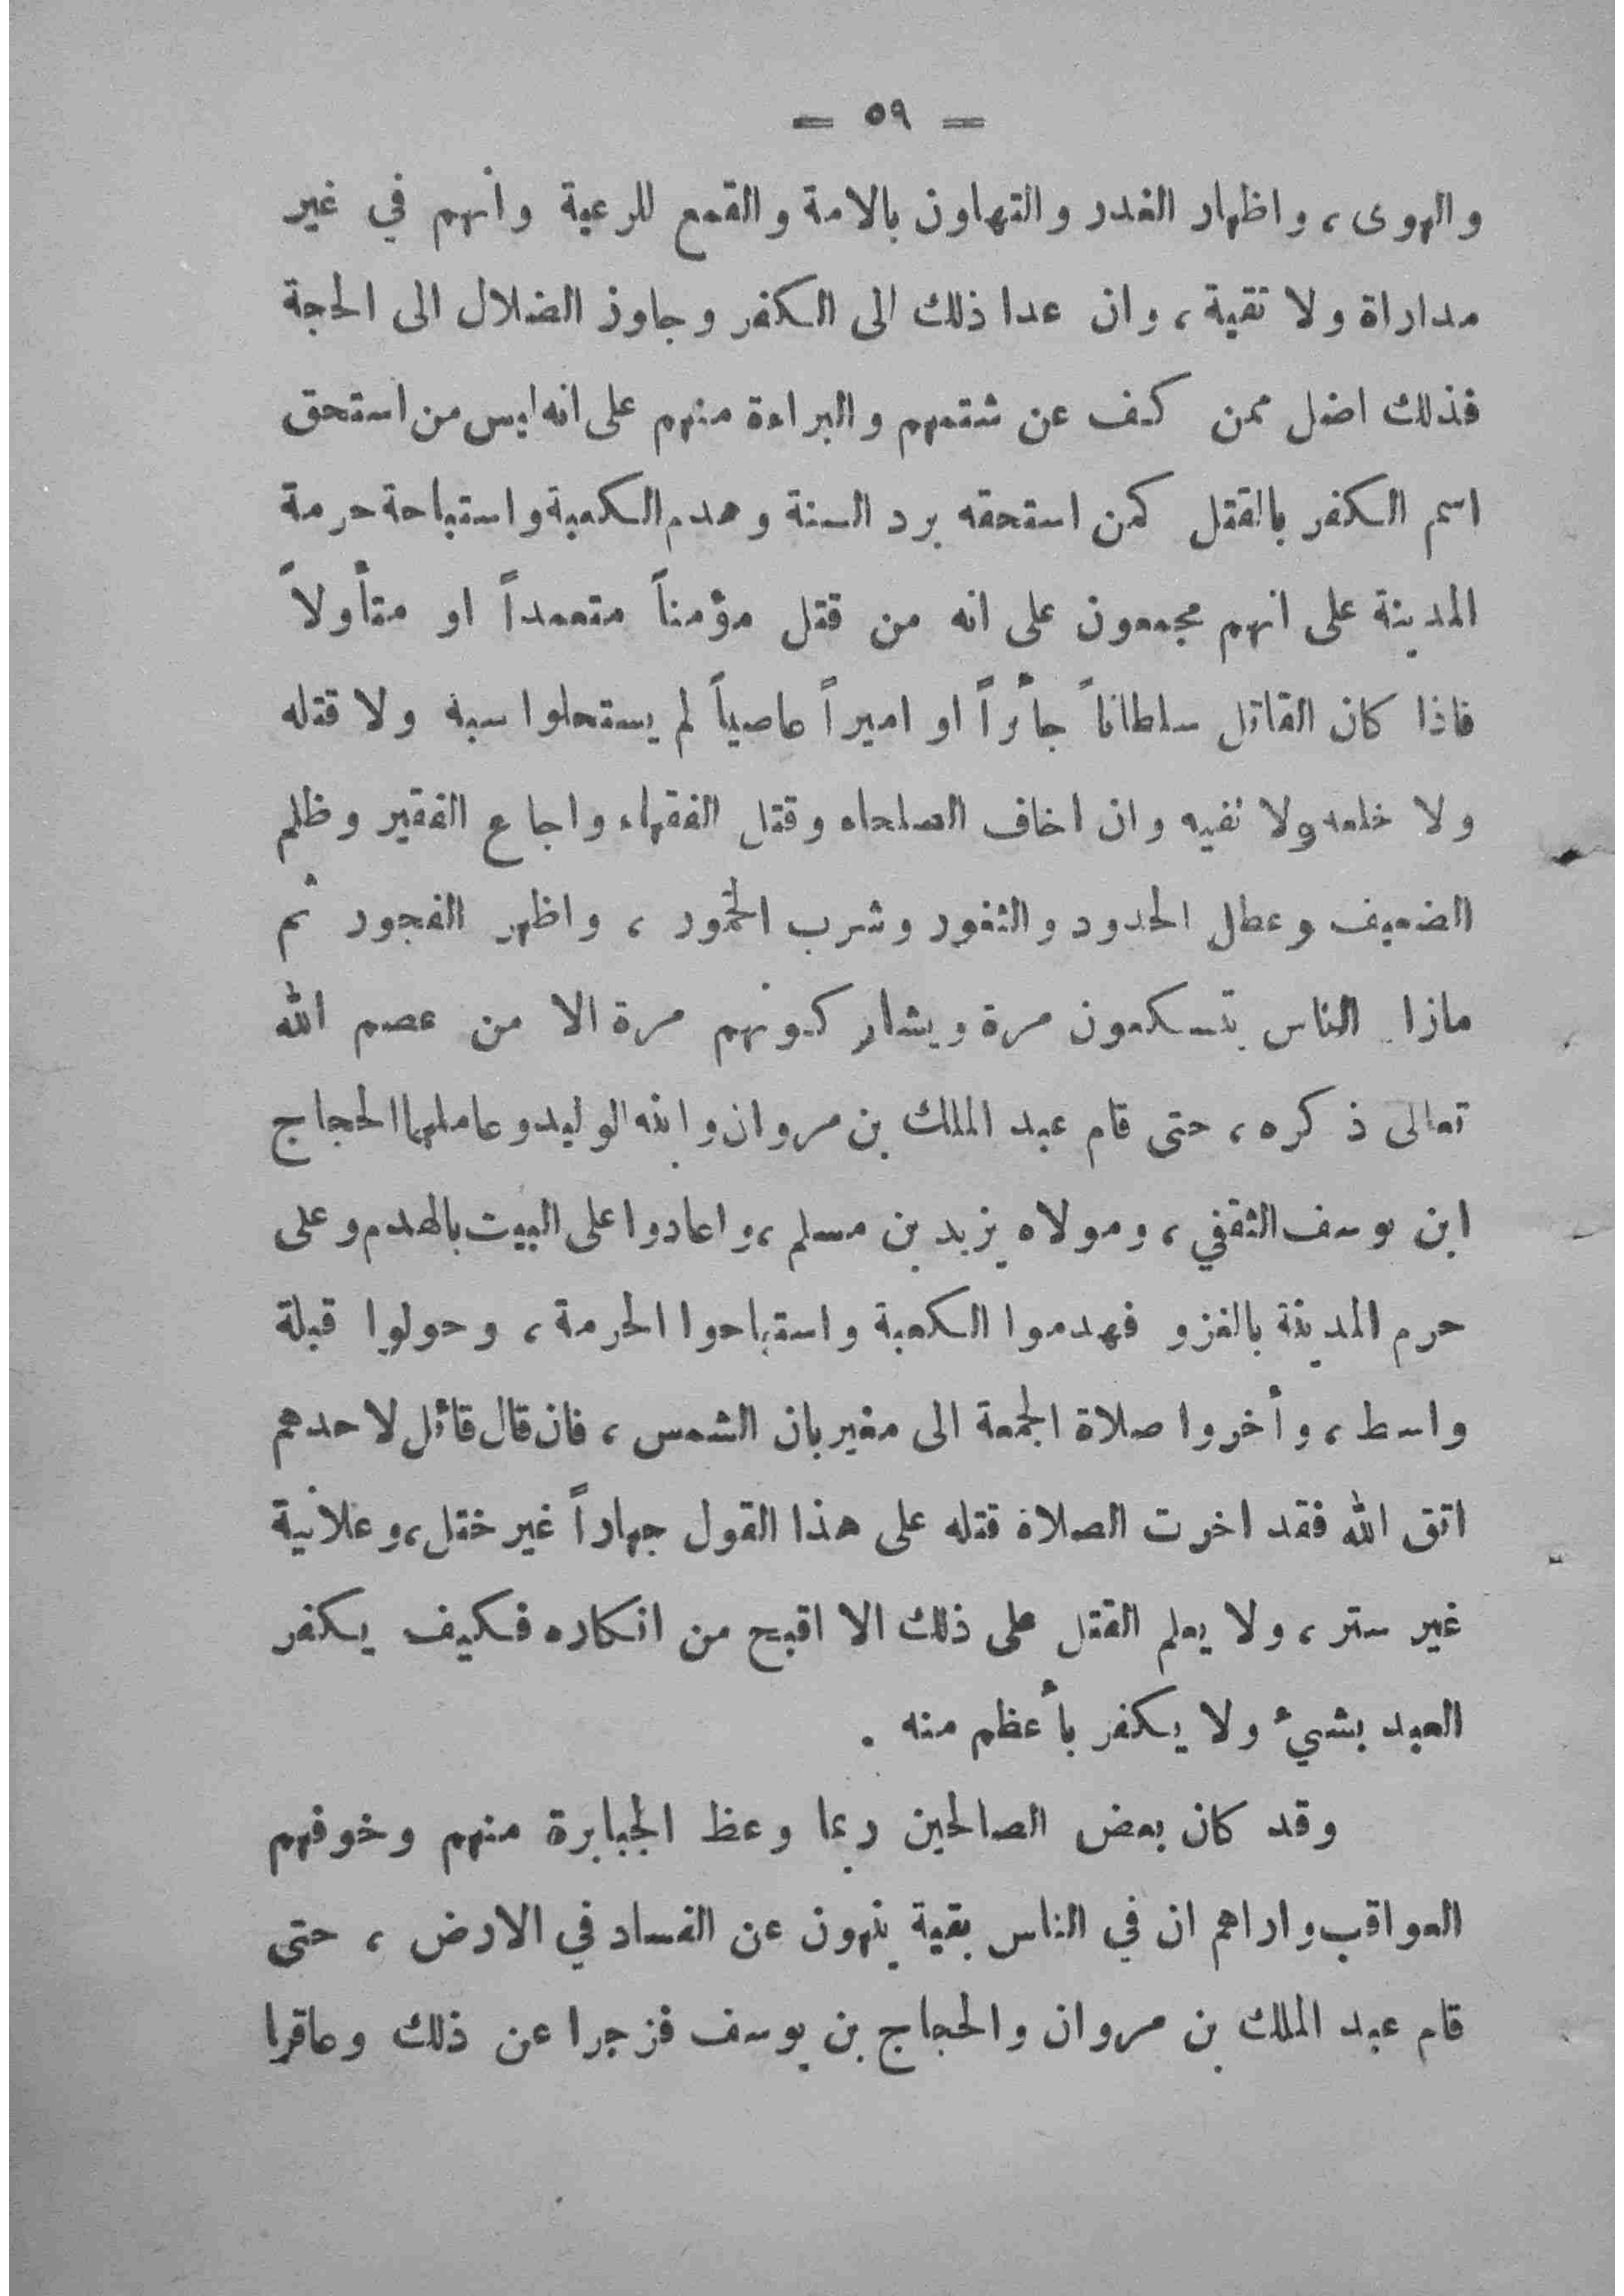 = ٥٩ =
والهوى، واظهار الغدر والتهاون بالامة والقمع للرعية وانهم في غير
مداراة ولا تقية، وان عدا ذلك الى الكفر وجاوز الضلال الى الحجة
فذلك اضل ممن كف عن شتمهم والبراءة منهم على انه ليس من استحق
اسم الكفر بالقتل كمن استحقه برد السنة وهدم الكعبة واستباحة حرمة
المدينة على انهم مجمعون على انه من قتل مؤمناً متعمداً او متأولاً
فاذا كان القاتل سلطاناً جأراً او اميراً عاصياً لم يستحلوا سبه ولا قتله
ولا خلعه ولا نفيه وان اخاف الصلحاء وقتل الفقهاء واجاع الفقير وظلم
الضعيف وعطل الحدود والثغور وشرب الخمور، واظهر الفجور ثم
مازا الناس يتسكعون مرة ويشاركونهم مرة الا من عصم الله
تعالى ذكره، حتى قام عبد الملك بن مروان وابنه الوليد وعاملهما الحجاج
ابن يوسف الثقفي، ومولاه يزيد بن مسلم، واعادوا على البيت بالهدم وعلى
حرم المدينة بالغزو فهدموا الكعبة واستباحوا الحرمة، وحولوا قبلة
واسط، وأخروا صلاة الجمعة الى مغيربان الشمس، فان قال قائل لاحدهم
اتق الله فقد اخرت الصلاة قتله على هذا القول جهاراً غير ختل، وعلانية
غير ستر، ولا يعلم القتل على ذلك الا اقبح من انكاره فكيف يكفر
العبد بشيء ولا يكفر بأعظم منه .
وقد كان بعض الصالحين ربما وعظ الجبابرة منهم وخوفهم
العواقب واراهم ان في الناس بقية ينهون عن الفساد في الارض، حتى
قام عبد الملك بن مروان والحجاج بن يوسف فزجرا عن ذلك وعاقبا